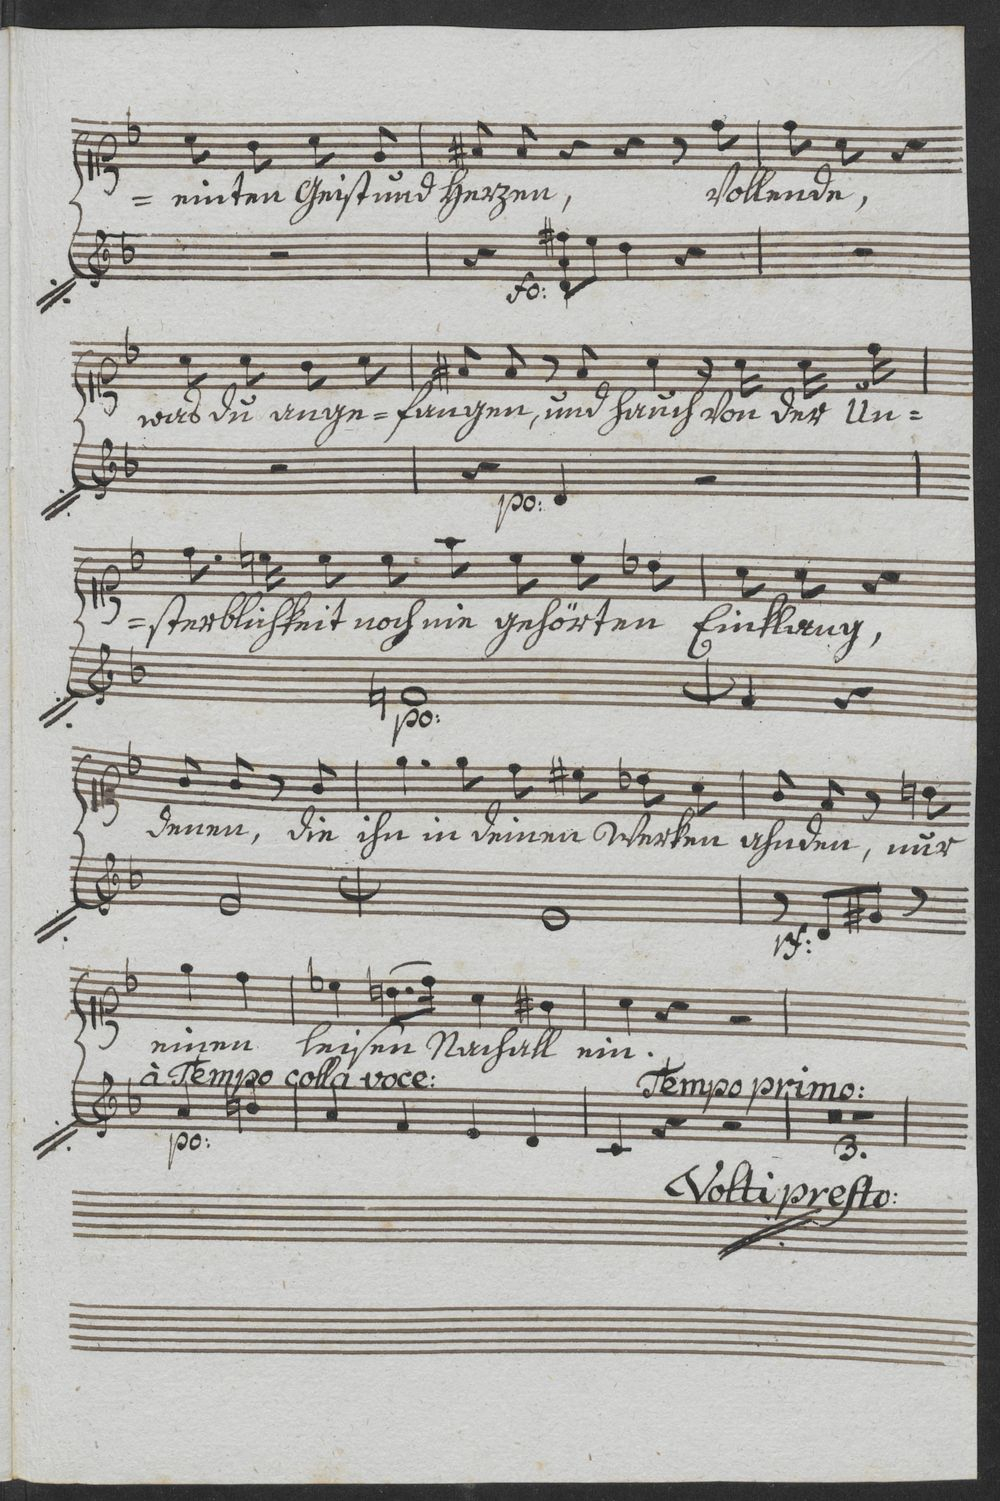 = einten Geist und Herzen, Vollende,
fo:
was du ange = fangen, und hauch von der Un =
po:
= sterblichkeit noch nie gehörten Einklang,
po:
denen, die ihn in deinen Werken ahnden, nur
rf:
einen leisen Nachall ein.
à Tempo colla voce: Tempo primo:
po: 3.
Volti presto: